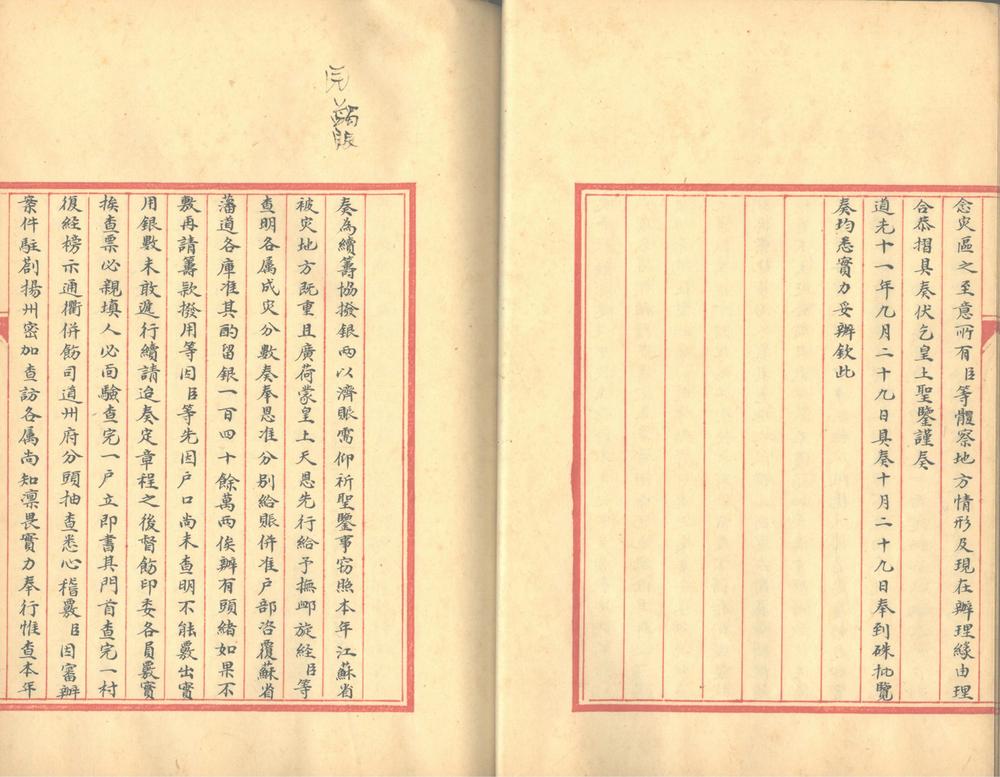 念灾區之至意所有臣等體察地方情形及現在辦理緣由理
合恭摺具奏伏乞皇上聖鑒謹奏
道光十一年九月二十九日具奏十月二十九日奉到硃批覽
奏均悉實力妥辦欽此
蠲賑
奏為續籌協撥銀兩以濟賑需仰祈聖鑒事窃照本年江蘇省
被灾地方既重且廣荷蒙皇上天恩先行給予撫卹旋經臣等
查明各属成灾分數奏奉恩准分别給賑併准户部咨覆蘇省
藩道各庫准其酌留銀一百四十餘萬兩俟辦有頭緒如果不
敷再請籌款撥用等因臣等先因户口尚未查明不能覈出實
用銀數未敢遽行續請迨奏定章程之後督飭印委各員覈實
挨查票必親填人必面驗查完一户立即書其門首查完一村
復經榜示通衢併飭司道州府分頭抽查悉心稽覈臣因審辦
案件駐劄揚州密加查訪各属尚知凛畏實力奉行惟查本年